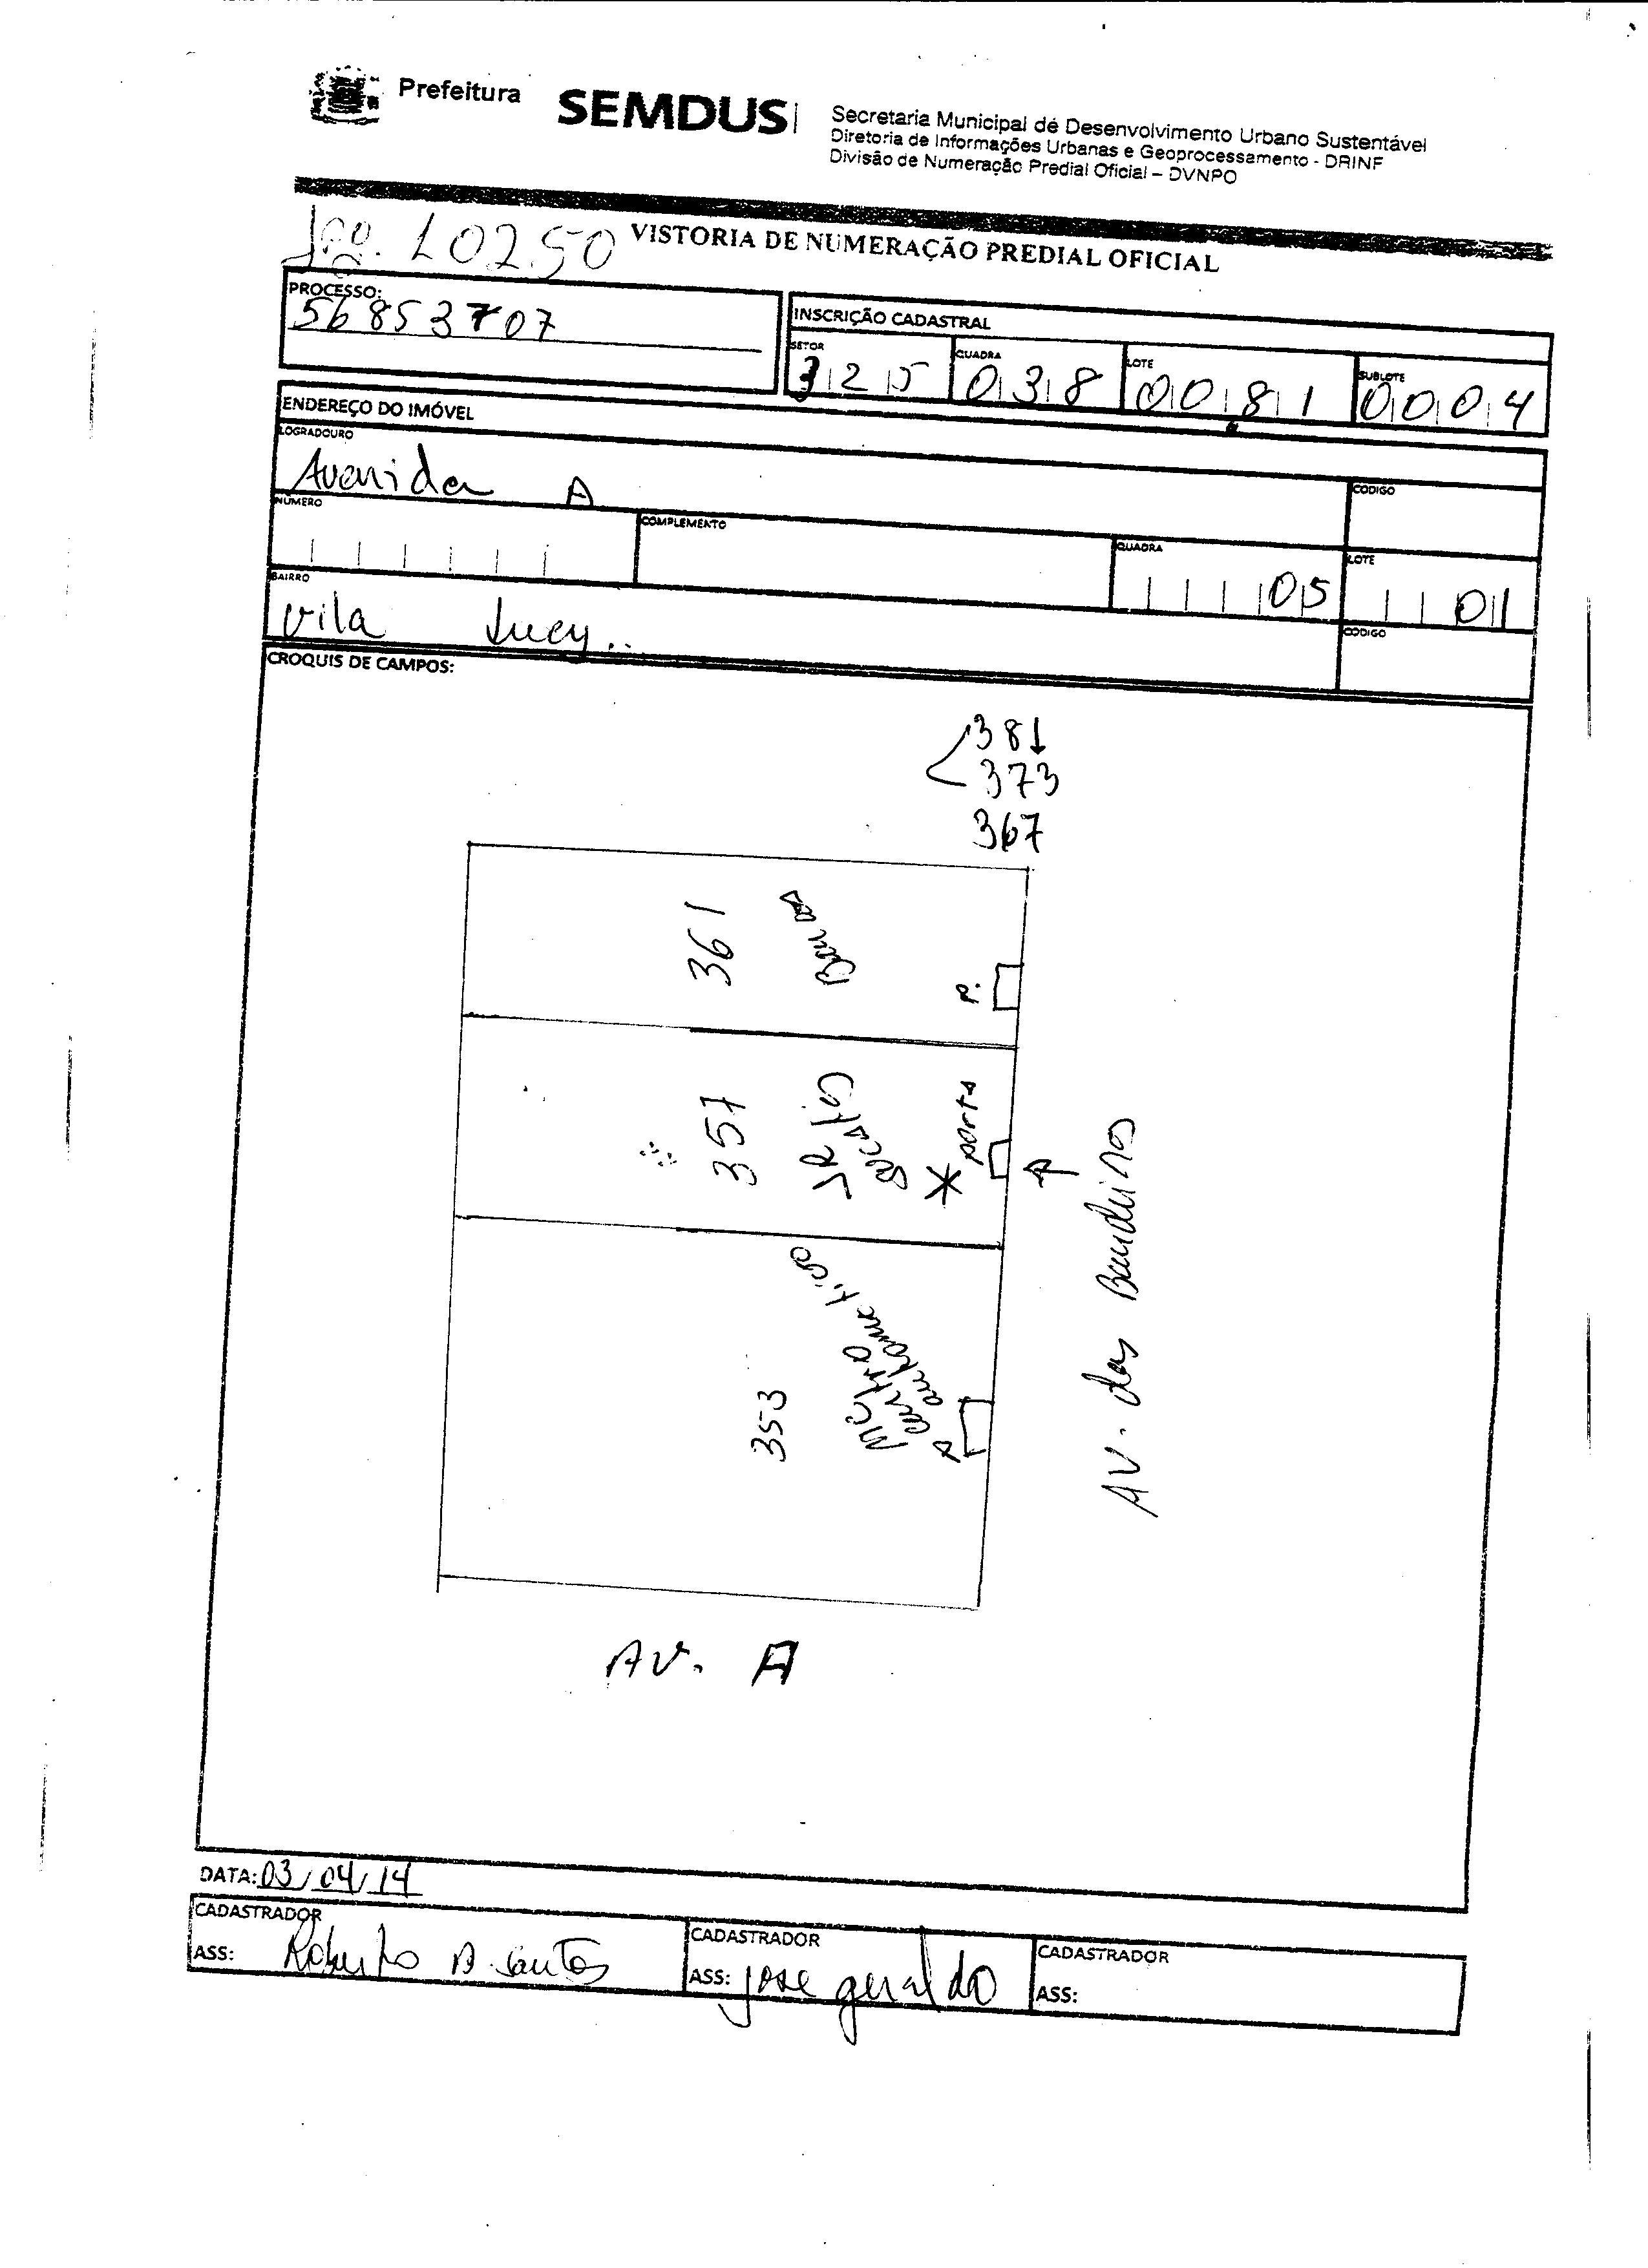 Prefeitura SEMDUS
Secretaria Municipal de Desenvolvimento Urbano Sustentável
Diretoria de Informações Urbanas e Geoprocessamento - DRINF
Divisão de Numeração Predial Oficial – DVNPO
10250
VISTORIA DE NUMERAÇÃO PREDIAL OFICIAL
PROCESSO:
56853707
INSCRIÇÃO CADASTRAL
SETOR QUADRA LOTE SUBLOTE
325 038 0081 0004
ENDEREÇO DO IMÓVEL
LOGRADOURO
Avenida A
CODIGO
NÚMERO COMPLEMENTO QUADRA LOTE
05 01
BAIRRO
Vila Lucy
CODIGO
CROQUIS DE CAMPOS:
381
373
367
361
P.
357
JR
porta
353
metro
automotivo
P
AV. das Bandeiras
AV. A
DATA: 03/04/14
CADASTRADOR
ASS: Roberto A. Santos
CADASTRADOR
ASS: jose geraldo
CADASTRADOR
ASS: